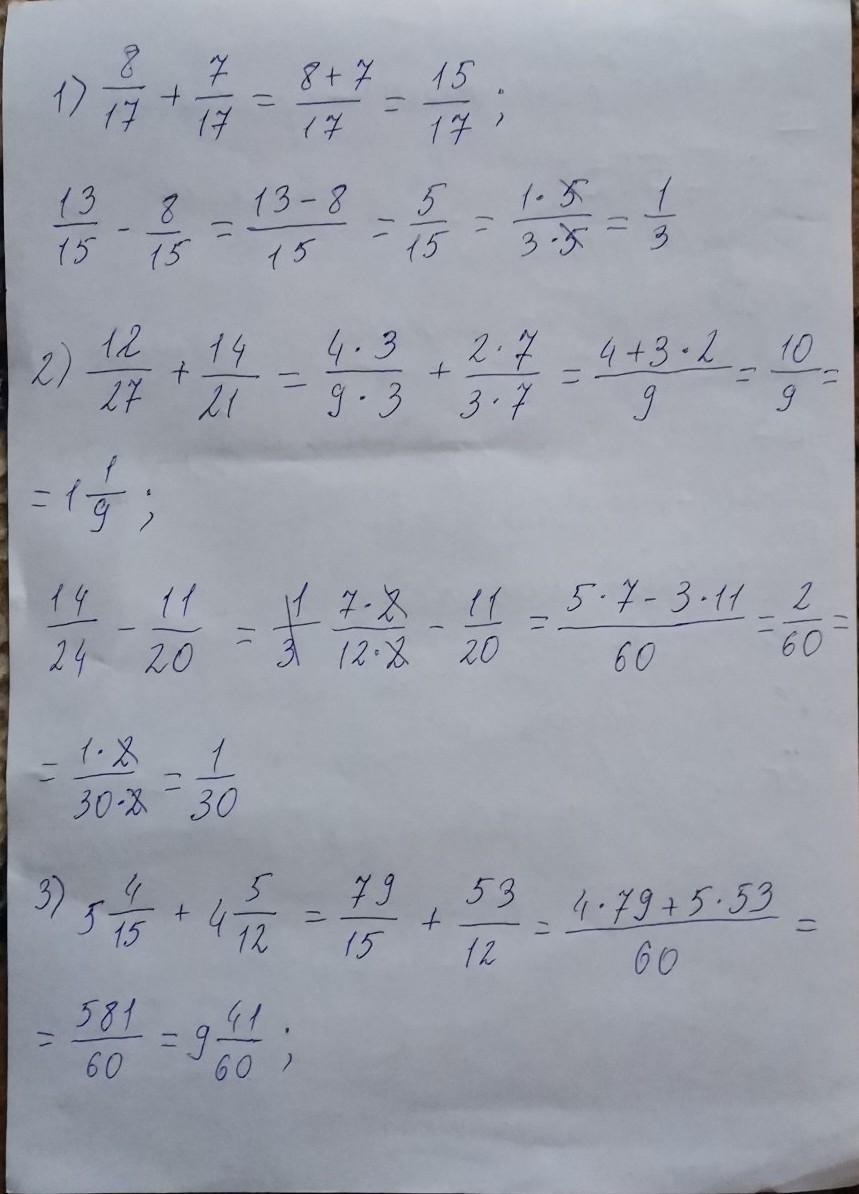 1) 8/17 + 7/17 = (8+7)/17 = 15/17 ;
13/15 - 8/15 = (13-8)/15 = 5/15 = (1·5)/(3·5) = 1/3
2) 12/27 + 14/21 = (4·3)/(9·3) + (2·7)/(3·7) = (4+3·2)/9 = 10/9 =
= 1 1/9 ;
14/24 - 11/20 = 1/3 (7·2)/(12·2) - 11/20 = (5·7-3·11)/60 = 2/60 =
= (1·2)/(30·2) = 1/30
3) 5 4/15 + 4 5/12 = 79/15 + 53/12 = (4·79+5·53)/60 =
= 581/60 = 9 41/60 ;